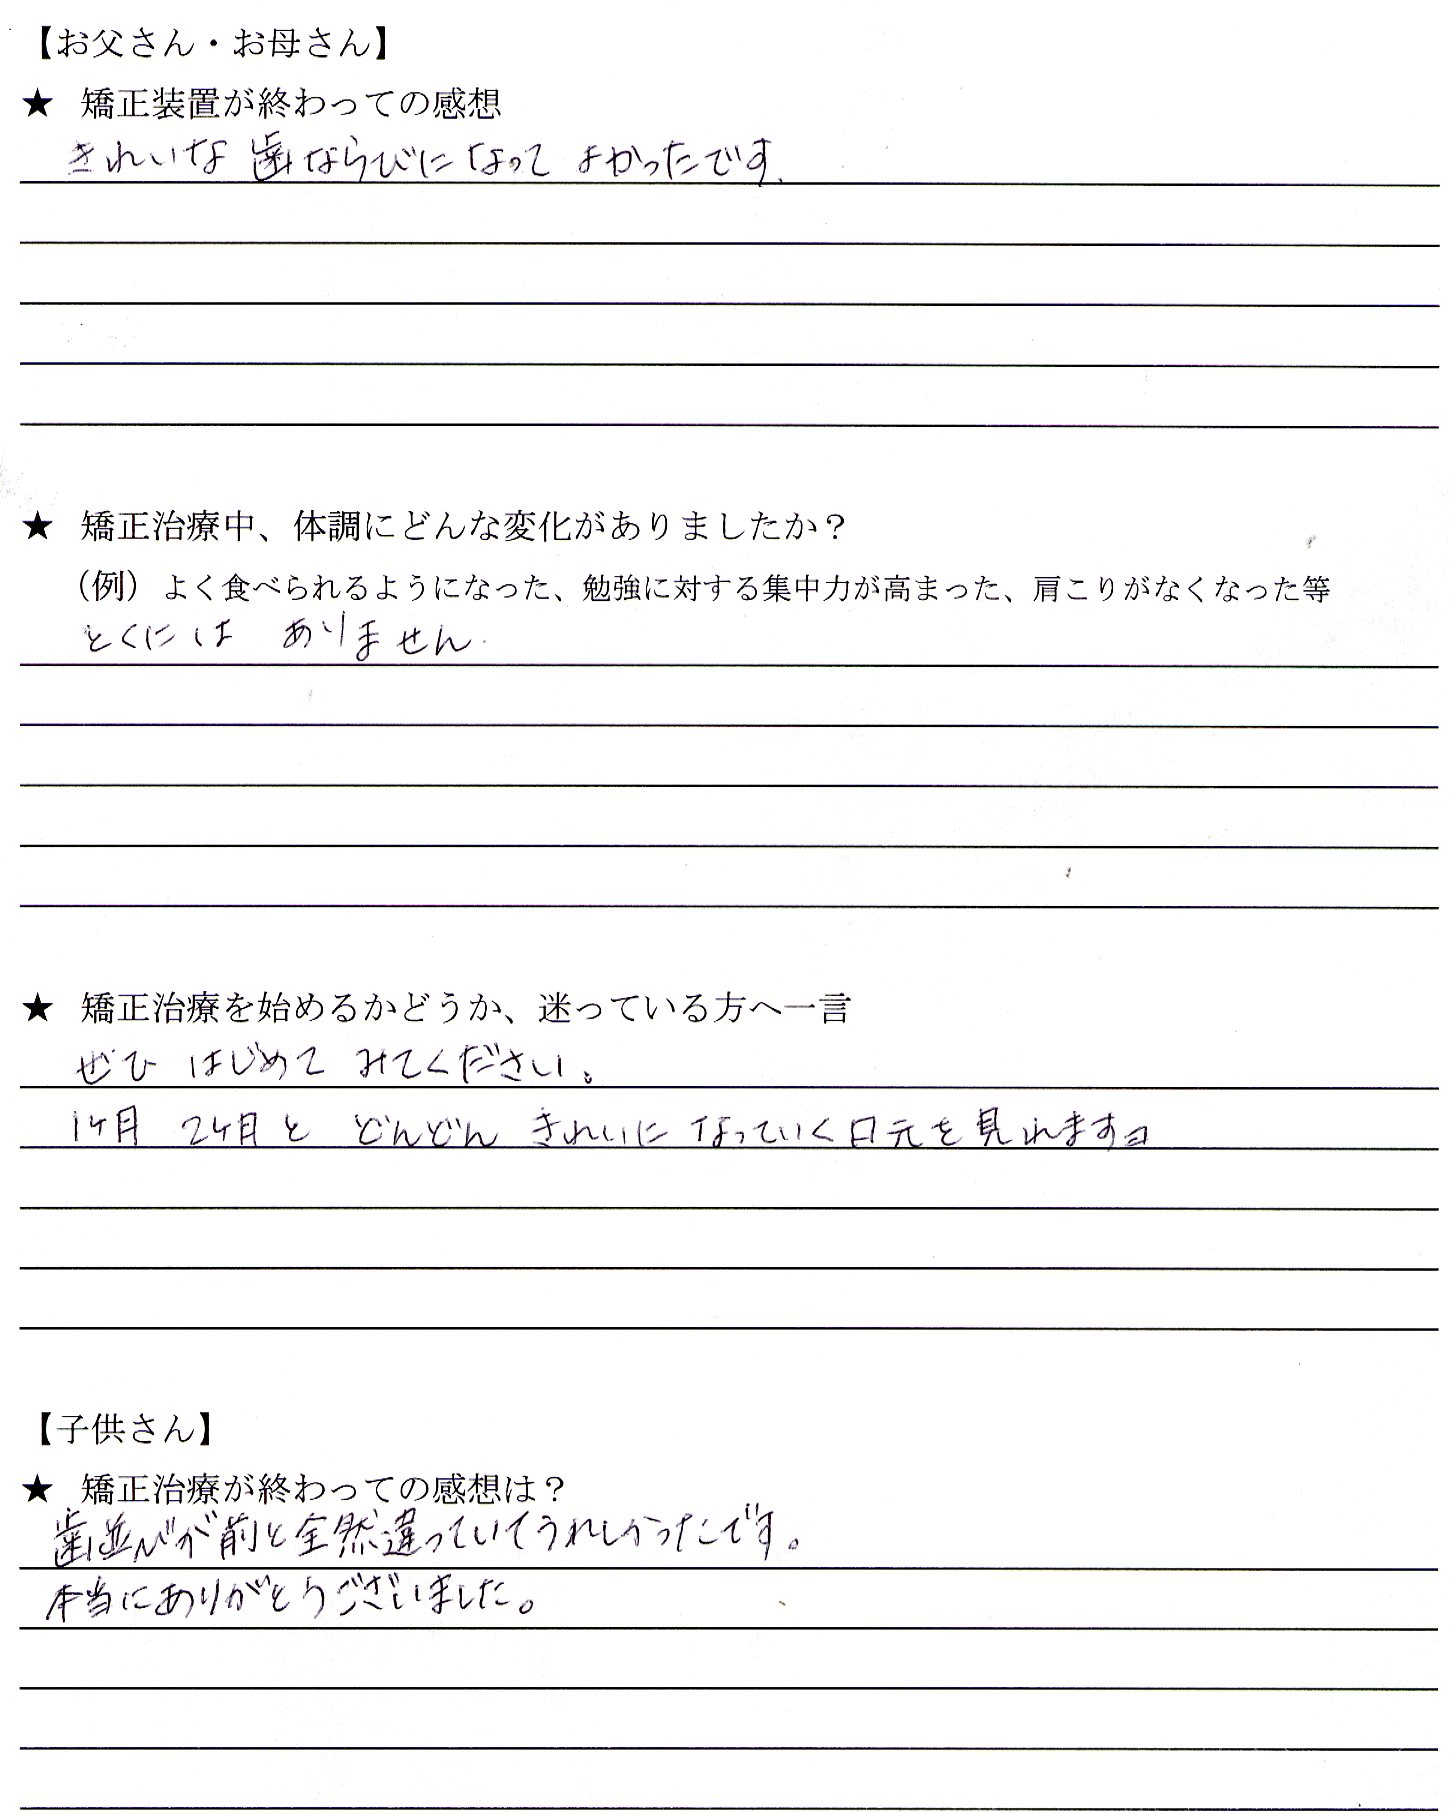 【お父さん・お母さん】
★ 矯正装置が終わっての感想
きれいな歯ならびになってよかったです.
★ 矯正治療中、体調にどんな変化がありましたか？
（例）よく食べられるようになった、勉強に対する集中力が高まった、肩こりがなくなった等
とくには ありません.
★ 矯正治療を始めるかどうか、迷っている方へ一言
ぜひ はじめて みてください。
1ヶ月 2ヶ月と どんどん きれいに なっていく口元を見れますヨ
【子供さん】
★ 矯正治療が終わっての感想は？
歯並びが前と全然違っていてうれしかったです。
本当にありがとうございました。